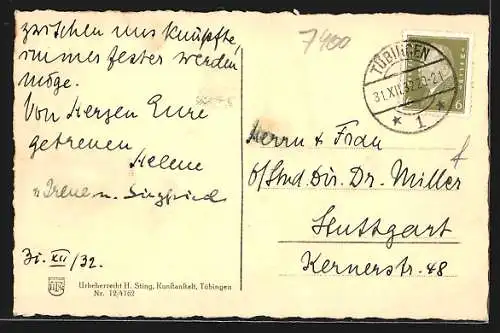 zwischen uns knüpfte,
immer fester werden
möge.
Von Herzen Eure
getreuen
Helene
u. Irene u. Siegfried
31. XII/32.
Urheberrecht H. Sting, Kunstanstalt, Tübingen
Nr. 12/4162
7400
TÜBINGEN
31.XII.32.20-21
* 1 *
6
Herrn & Frau
O/Stud. Dir. Dr. Miller
Stuttgart
Kernerstr. 48